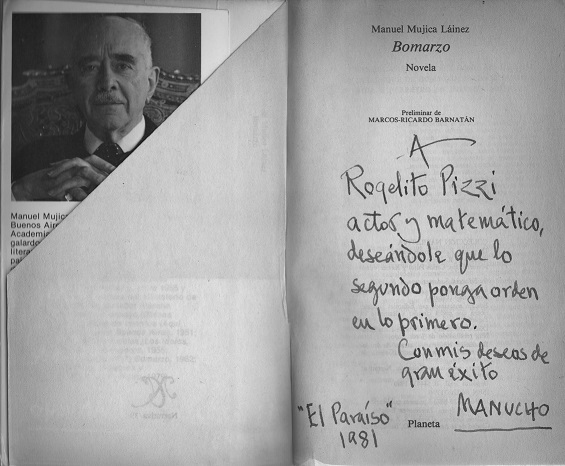 Manuel Mujica
Buenos Aire
Academi
galardo
litera
Manuel Mujica Láinez
Bomarzo
Novela
Preliminar de
MARCOS-RICARDO BARNATÁN
A
Rogelito Pizzi
actor y matemático,
deseándole que lo
segundo ponga orden
en lo primero.
Con mis deseos de
gran éxito
MANUCHO
"El Paraíso"
1981
Planeta